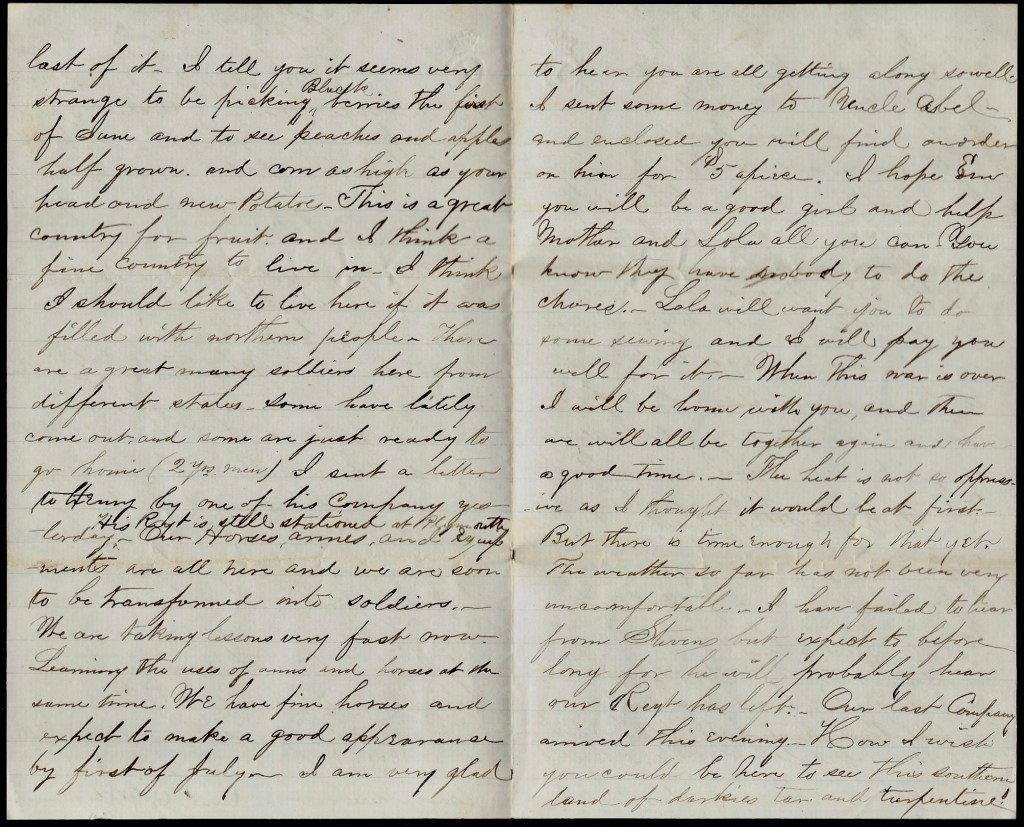 last of it - I tell you it seems very
strange to be picking Black berries the first
of June and to see peaches and apples
half grown. and corn as high as your
head and new Potatoe - This is a great
country for fruit. and I think a
fine country to live in - I think
I should like to live here if it was
filled with northern people - There
are a great many soldiers here from
different states - some have lately
come out and some are just ready to
go home (2 yrs men) I sent a letter
to Henry by one of his Company yes-
His Regt is still stationed at Plymouth
terday - Our Horses, armes, and Equip
ments are all here and we are soon
to be transformed into soldiers. -
We are taking lessons very fast now -
Learning the uses of arms and horses at the
same time. We have fine horses and
expect to make a good appearanse
by first of July - I am very glad
to hear you are all getting along so well.
I sent some money to Uncle Abel -
and enclosed you will find an order
on him for $5 apiece. I hope Em
you will be a good girl and help
Mother and Lola all you can. You
know they have nobody to do the
chores. - Lola will want you to do
some sewing and I will pay you
well for it. - When this war is over
I will be home with you, and then
we will all be together again and have
a good time. - The heat is not so oppress-
ive as I thought it would be at first. -
But there is time enough for that yet.
The weather so far has not been very
uncomfortable. - I have failed to hear
from Stevens but expect to before
long for he will probably hear
our Regt has left. - Our last Company
arrived this evening. - How I wish
you could be here to see this southern
land of darkies tar and turpentine!